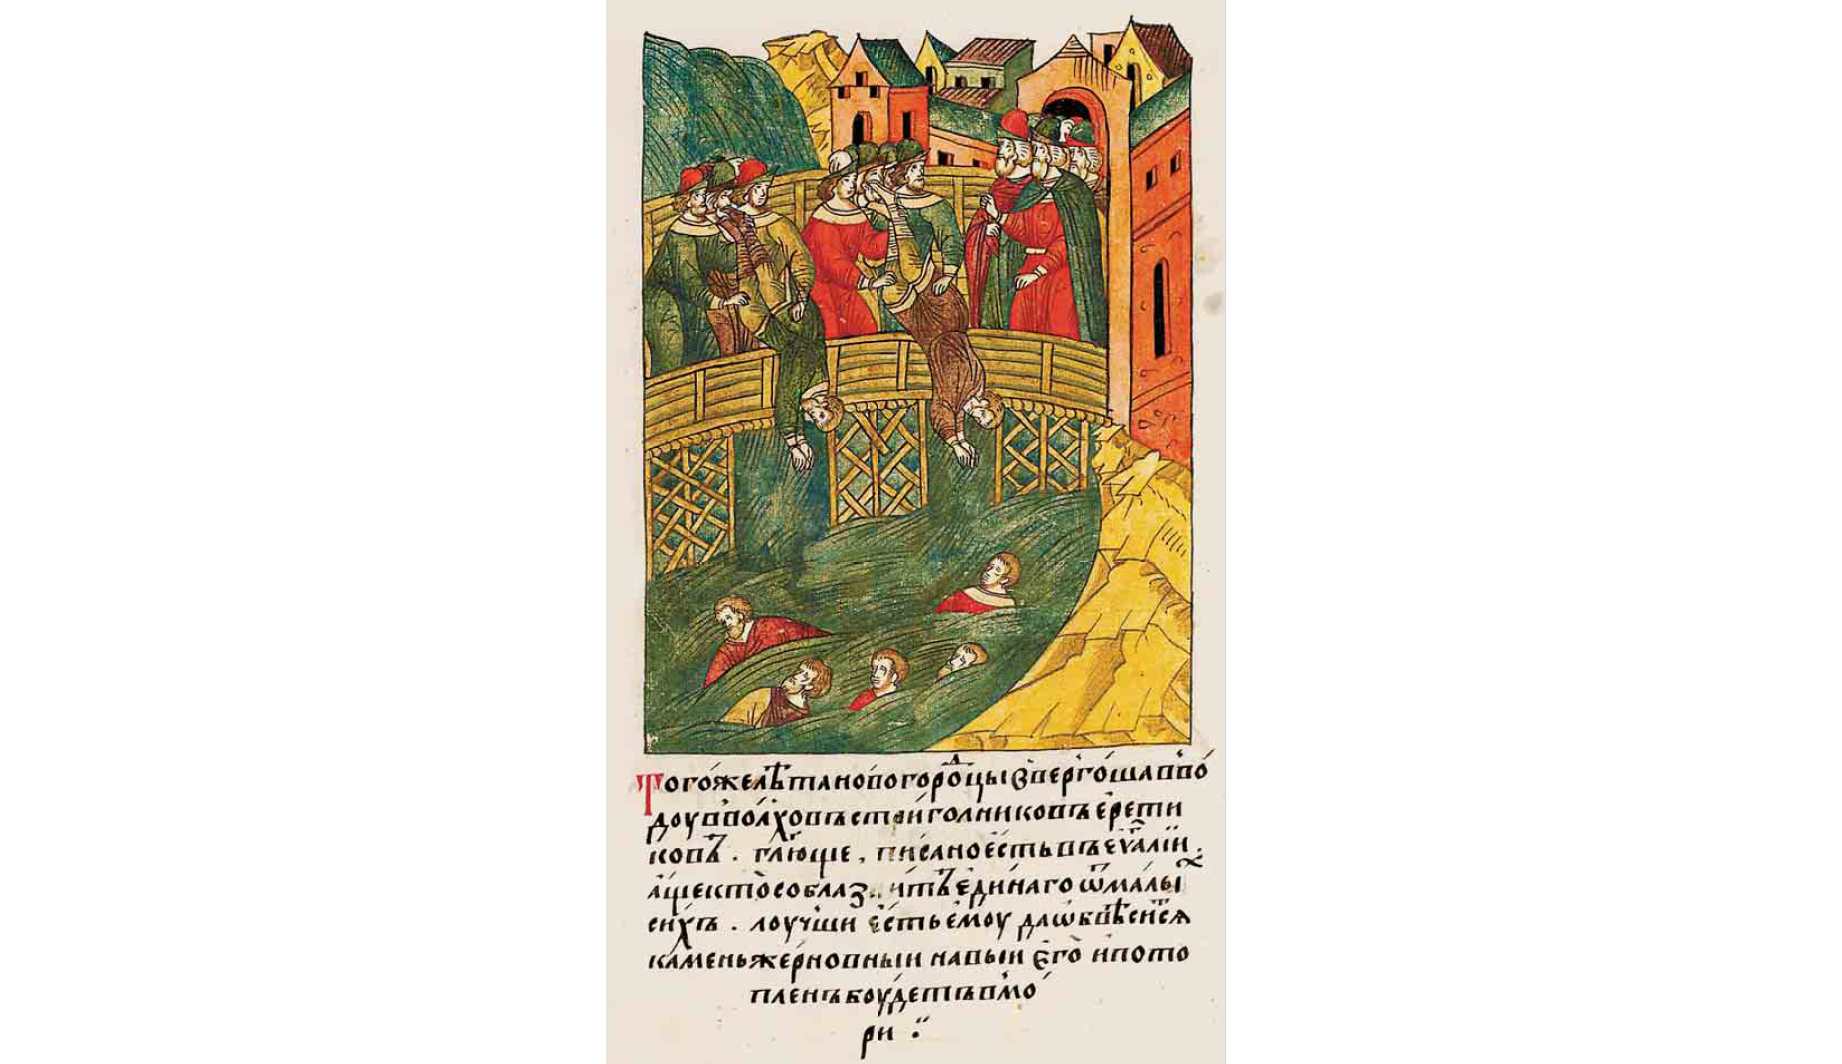 Того́же лѣ́та новогоро́дцы въверго́ша в̾во́
ду в̾во́лховъ стриго́лниковъ е́рети
ковъ . гл҃ю́ще , пи́сано е́сть въ еу҆а́лїи .
а́ще кто̀ соблазнитъ еди́наго ѿ ма́лы х̾
си́хъ . лоу́чши е́сть е́моу да ѡбѣ́ситсѧ
ка́мень же́рновныи на выи е҆го̀ и пото
пленъ боу́детъ в̾мо́
ри .